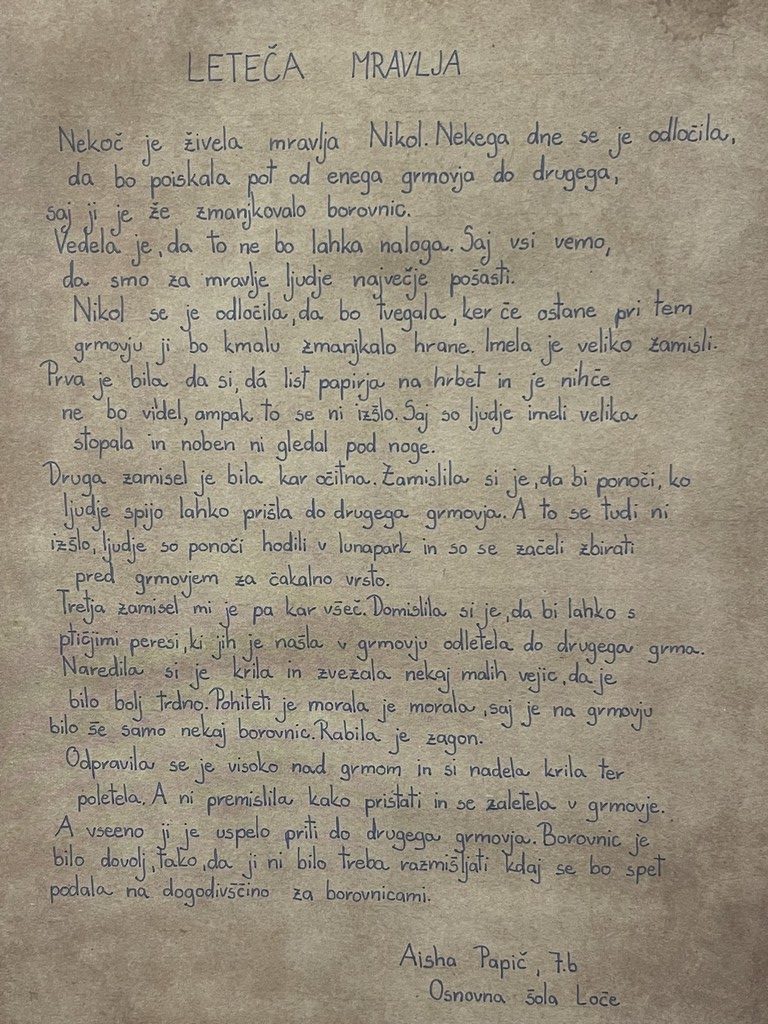 LETEČA MRAVLJA
Nekoč je živela mravlja Nikol. Nekega dne se je odločila,
da bo poiskala pot od enega grmovja do drugega,
saj ji je že zmanjkovalo borovnic.
Vedela je, da to ne bo lahka naloga. Saj vsi vemo,
da smo za mravlje ljudje največje pošasti.
Nikol se je odločila, da bo tvegala, ker če ostane pri tem
grmovju ji bo kmalu zmanjkalo hrane. Imela je veliko zamisli.
Prva je bila da si, dá list papirja na hrbet in je nihče
ne bo videl, ampak to se ni izšlo. Saj so ljudje imeli velika
stopala in noben ni gledal pod noge.
Druga zamisel je bila kar očitna. Zamislila si je, da bi ponoči, ko
ljudje spijo lahko prišla do drugega grmovja. A to se tudi ni
izšlo, ljudje so ponoči hodili v lunapark in so se začeli zbirati
pred grmovjem za čakalno vrsto.
Tretja zamisel mi je pa kar všeč. Domislila si je, da bi lahko s
ptičjimi peresi, ki jih je našla v grmovju odletela do drugega grma.
Naredila si je krila in zvezala nekaj malih vejic, da je
bilo bolj trdno. Pohiteti je morala je morala, saj je na grmovju
bilo še samo nekaj borovnic. Rabila je zagon.
Odpravila se je visoko nad grmom in si nadela krila ter
poletela. A ni premislila kako pristati in se zaletela v grmovje.
A vseeno ji je uspelo priti do drugega grmovja. Borovnic je
bilo dovolj, tako, da ji ni bilo treba razmišljati kdaj se bo spet
podala na dogodivščino za borovnicami.
Aisha Papič, 7.b
Osnovna šola Loče